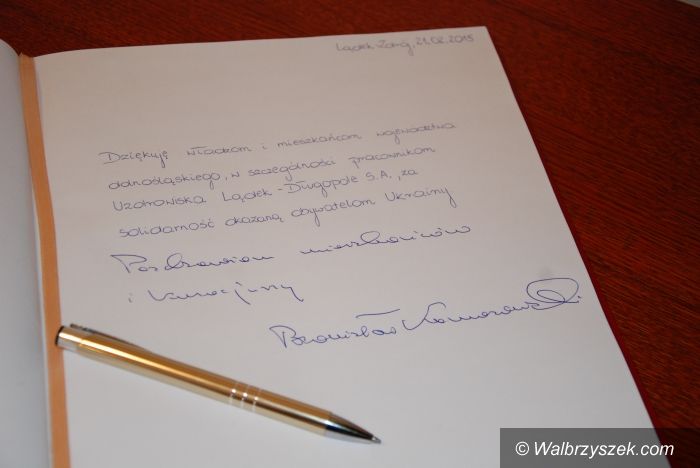 Lądek Zdrój, 21.02.2015
Dziękuję władzom i mieszkańcom województwa
dolnośląskiego, w szczególności pracownikom
Uzdrowiska Lądek-Długopole S.A., za
solidarność okazaną obywatelom Ukrainy
Pozdrawiam mieszkańców
i kuracjuszy
Bronisław Komorowski
© Walbrzyszek.com